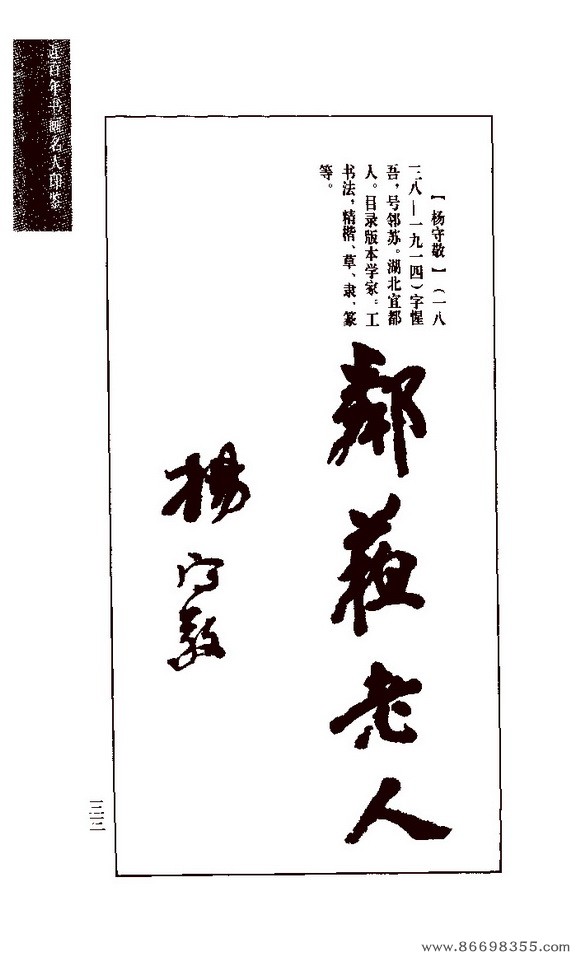 近百年书画名人印鉴
【杨守敬】（一八
三八—一九一四）字惺
吾，号邻苏。湖北宜都
人。目录版本学家。工
书法，精楷、草、隶、篆
等。
鄰蘓老人
楊守敬
三三
www.86698355.com